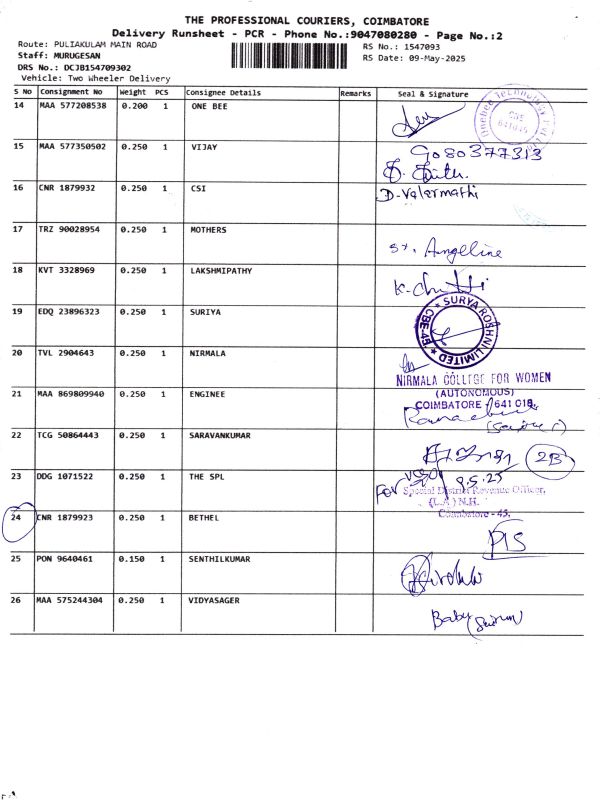 THE PROFESSIONAL COURIERS, COIMBATORE
Delivery Runsheet - PCR - Phone No.:9047080280 - Page No.:2
Route: PULIAKULAM MAIN ROAD
RS No.: 1547093
Staff: MURUGESAN
RS Date: 09-May-2025
DRS No.: DCJB154709302
Vehicle: Two Wheeler Delivery
S No Consignment No Weight PCS Consignee Details Remarks Seal & Signature
14 MAA 577208538 0.200 1 ONE BEE
15 MAA 577350502 0.250 1 VIJAY 9080377313
16 CNR 1879932 0.250 1 CSI D. Valarmathi
17 TRZ 90028954 0.250 1 MOTHERS St. Angeline
18 KVT 3328969 0.250 1 LAKSHMIPATHY
19 EDQ 23896323 0.250 1 SURIYA SURYA ROSHNI LIMITED CBE-45
20 TVL 2904643 0.250 1 NIRMALA
NIRMALA COLLEGE FOR WOMEN
21 MAA 869809940 0.250 1 ENGINEE (AUTONOMOUS)
COIMBATORE - 641 018.
22 TCG 50864443 0.250 1 SARAVANKUMAR 2B
23 DDG 1071522 0.250 1 THE SPL 9.5.25
For Special District Revenue Officer,
(L.A) N.H.
Coimbatore - 45.
24 CNR 1879923 0.250 1 BETHEL
25 PON 9640461 0.150 1 SENTHILKUMAR
26 MAA 575244304 0.250 1 VIDYASAGER Baby